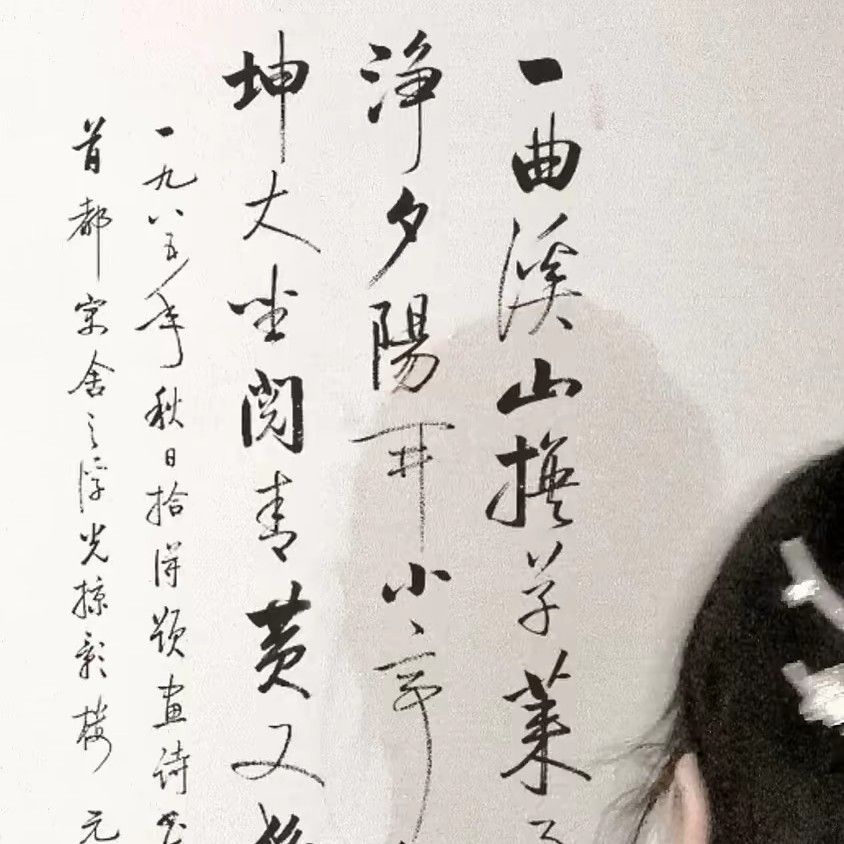 一曲溪山撫草萊
淨夕陽開小亭
坤大坐閱青黃又
一九八五年秋日拾得題畫詩書
首都寓舍之浮光掠影樓 元